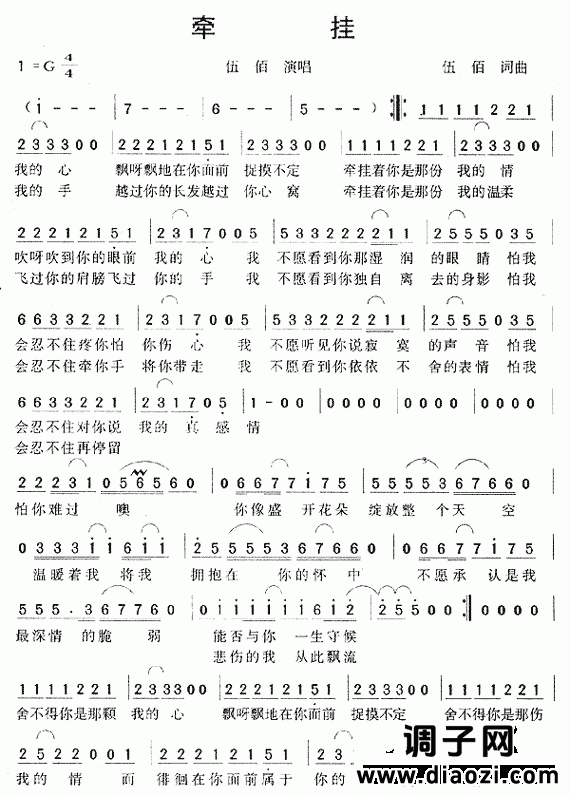 牵 挂
1=G 4/4 伍 佰 演唱 伍 佰 词曲
( i - - - | 7 - - - | 6 - - - | 5 - - - ) |: 1 1 1 1 2 2 1 |
2 3 3 3 0 0 | 2 2 2 1 2 1 5 1 | 2 3 3 3 0 0 | 1 1 1 1 2 2 1 | 2 3 3 3 0 0 |
我的 心 飘呀飘地在你面前 捉摸不定 牵挂着你是那份 我的 情
我的 手 越过你的长发越过 你心 窝 牵挂着你是那份 我的温柔
2 2 2 1 2 1 5 1 | 2 3 1 7 0 0 5 | 2 5 3 3 3 2 2 2 1 1 | 2 5 5 0 3 5 |
吹呀吹到你的眼前 我的 心 我 不愿看到你那湿 润 的眼 睛 怕我
飞过你的肩膀飞过 你的 手 我 不愿看到你独自 离 去的身影 怕我
6 6 3 3 2 2 1 | 2 3 1 7 0 0 5 | 2 5 3 3 3 2 2 2 1 1 | 2 5 5 0 3 5 |
会忍不住疼你怕 你伤 心 我 不愿听见你说寂 寞 的声 音 怕我
会忍不住牵你手 将你带走 我 不愿看到你依依 不 舍的表情 怕我
6 6 3 3 2 2 1 | 2 3 1 7 0 5 | 1 - 0 0 | 0 0 0 0 | 0 0 0 0 | 0 0 0 0 |
会忍不住对你说 我的 真 感 情
会忍不住再停留
2 2 2 3 1 0 5 6 5 6 0 | 0 6 6 7 7 i 7 5 | 5 5 5 5 3 6 7 6 6 0 |
怕你难过 噢 你像盛 开花朵 绽放整 个天 空
0 3 3 3 i i 6 i i | 2 5 5 5 5 3 5 6 7 7 6 0 | 0 6 6 7 7 i 7 5 |
温暖着我 将我 拥抱在 你的 怀 中 不愿承 认是我
5 5 5 . 3 6 7 7 6 0 | 0 i i i i i i 6 i 2 | 2 5 5 0 0 :| 0 0 0 0 |
最深情 的脆 弱 能否与你 一生守候
悲伤的我 从此飘流
1 1 1 1 2 2 1 | 2 3 3 3 0 0 | 2 2 2 1 2 1 5 1 | 2 3 3 3 0 0 | 1 1 1 1 2 2 1 |
舍不得你是那颗 我的 心 飘呀飘地在你面前 捉摸不定 舍不得你是那伤
2 5 2 2 0 0 1
我的 情 而 徘徊在你面前属于 你的
调子网
www.diaozi.com